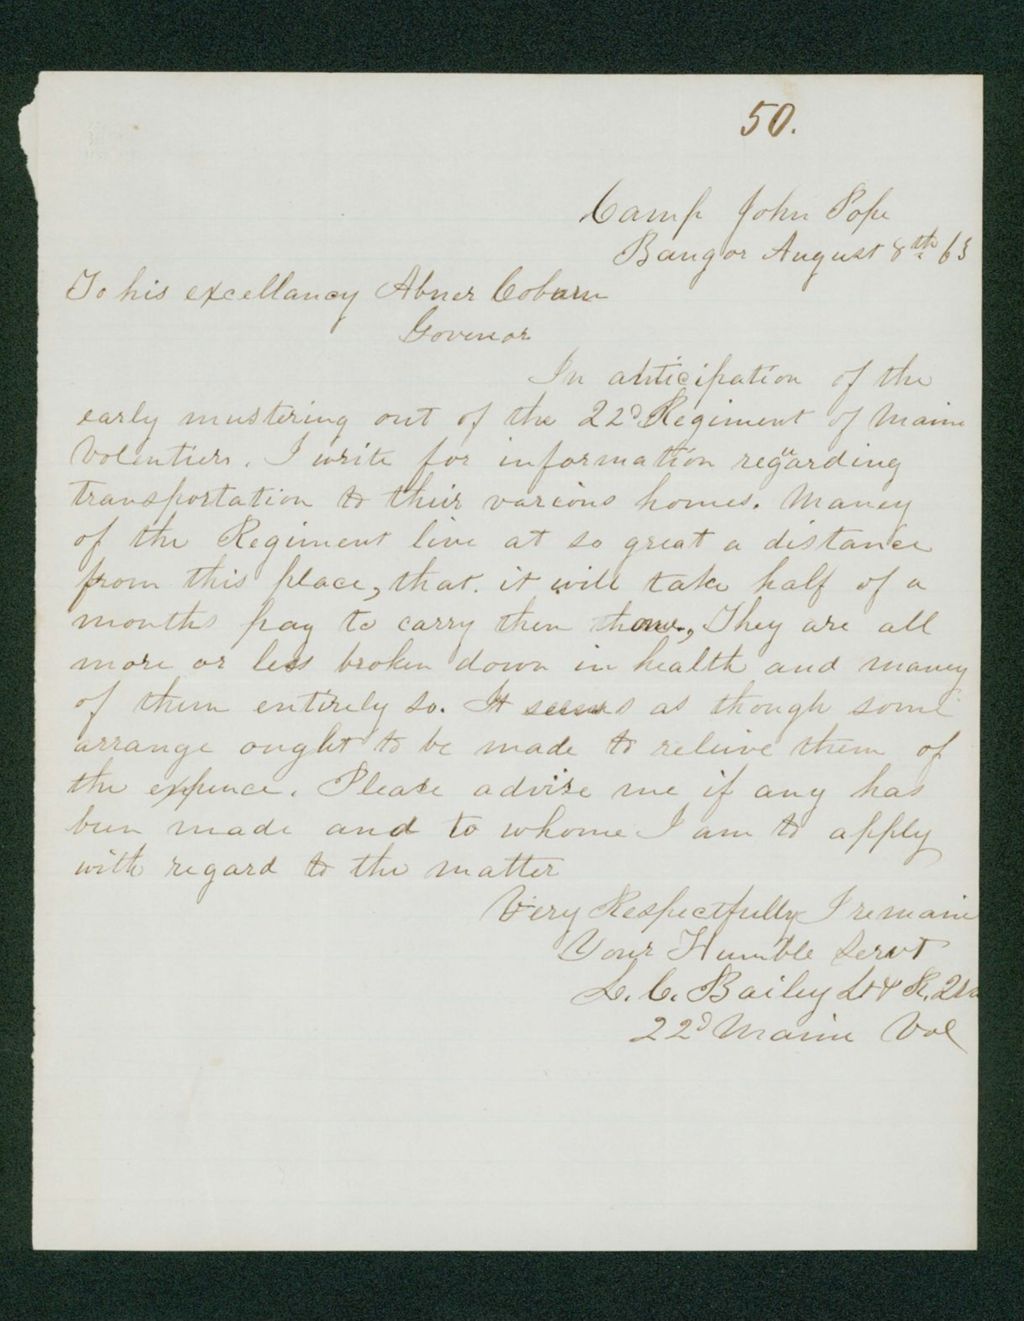 50.
Camp John Pope
Bangor August 8th 63
To his excellancy Abner Coburn
Govenor
In anticipation of the
early mustering out of the 22d Regiment of Maine
Volentiers. I write for information regarding
transportation to their various homes. Maney
of the Regiment live at so great a distance
from this place, that. it will take half of a
months pay to carry them
They are all
more or less broken down in health and maney
of them entirely so. It seems as though some
arrange ought to be made to releive them of
the expence. Please advise me if any has
been made and to whome I am to apply
with regard to the matter
Very Respectfully I remain
Your Humble Servt
L. C. Bailey Lt & R. Qm
22d Maine Vol